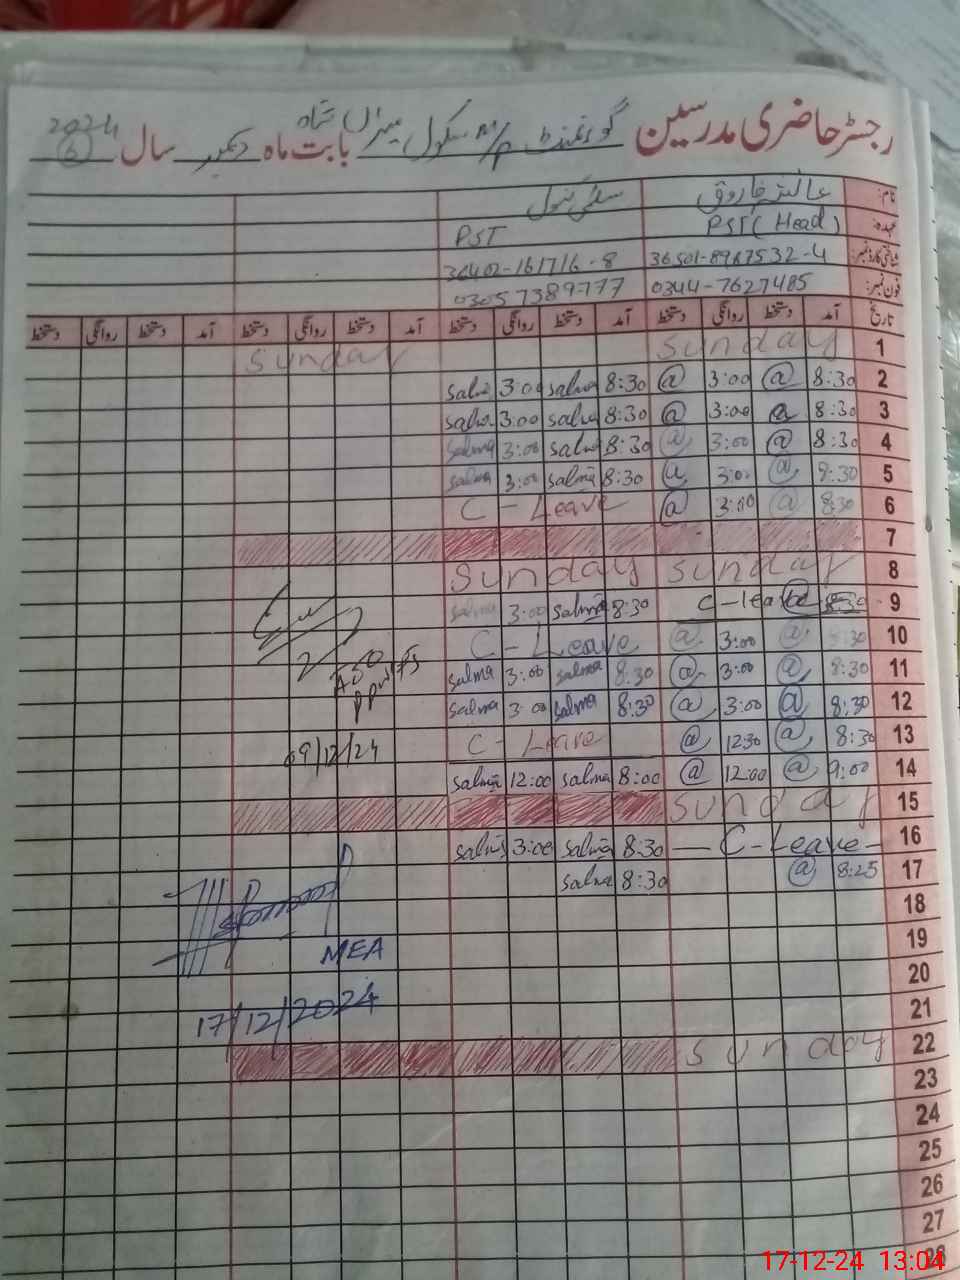 رجسٹر حاضری مدرسین گورنمنٹ سکول میراں شاہ بابت ماہ دسمبر سال 2024
6
نام: عائشہ فاروق سلمیٰ کنول
عہدہ: PST (Head) PST
شناختی کارڈ نمبر: 36501-8967532-4 36402-161716-8
فون نمبر: 0344-7627485 03057389777
تاریخ آمد دستخط روانگی دستخط آمد دستخط روانگی دستخط آمد دستخط روانگی دستخط آمد دستخط روانگی دستخط
1 sunday sunday
2 8:30 @ 3:00 @ 8:30 salma 3:00 salma
3 8:30 @ 3:00 @ 8:30 salma 3:00 salma
4 8:30 @ 3:00 @ 8:30 salma 3:00 salma
5 8:30 @ 3:00 @ 8:30 salma 3:00 salma
6 8:30 @ 3:00 @ C - Leave
7
8 sunday sunday
9 8:30 @ C - leave 8:30 salma 3:00 salma
10 8:30 @ 3:00 @ C - Leave
11 8:30 @ 3:00 @ 8:30 salma 3:00 salma
12 8:30 @ 3:00 @ 8:30 salma 3:00 salma
13 8:30 @ 12:30 @ C - Leave
09/12/24
14 9:00 @ 12:00 @ 8:00 salma 12:00 salma
15 sunday
16 — C - Leave - 8:30 salma 3:00 salma
17 8:25 @ 8:30 salma
18
19
MEA
20
21
17/12/2024
22 sunday
23
24
25
26
27
28
17-12-24 13:04